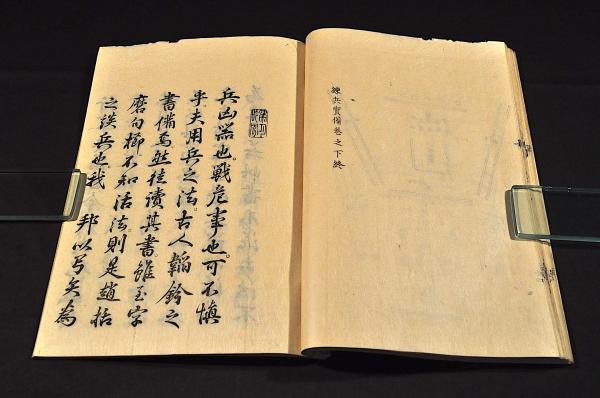 練兵實備卷之下終
兵凶器也。戰危事也。可不慎
乎。夫用兵之法。古人韜鈐之
書備焉。然徒讀其書。雖玉字
磨句櫛不知活法。則是趙括
之談兵也。我 邦以弓矢為